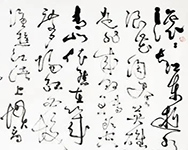 滚滚长江东逝水
浪花淘尽英雄
是非成败转头空
青山依旧在几
度夕阳红白发
渔樵江渚上惯看